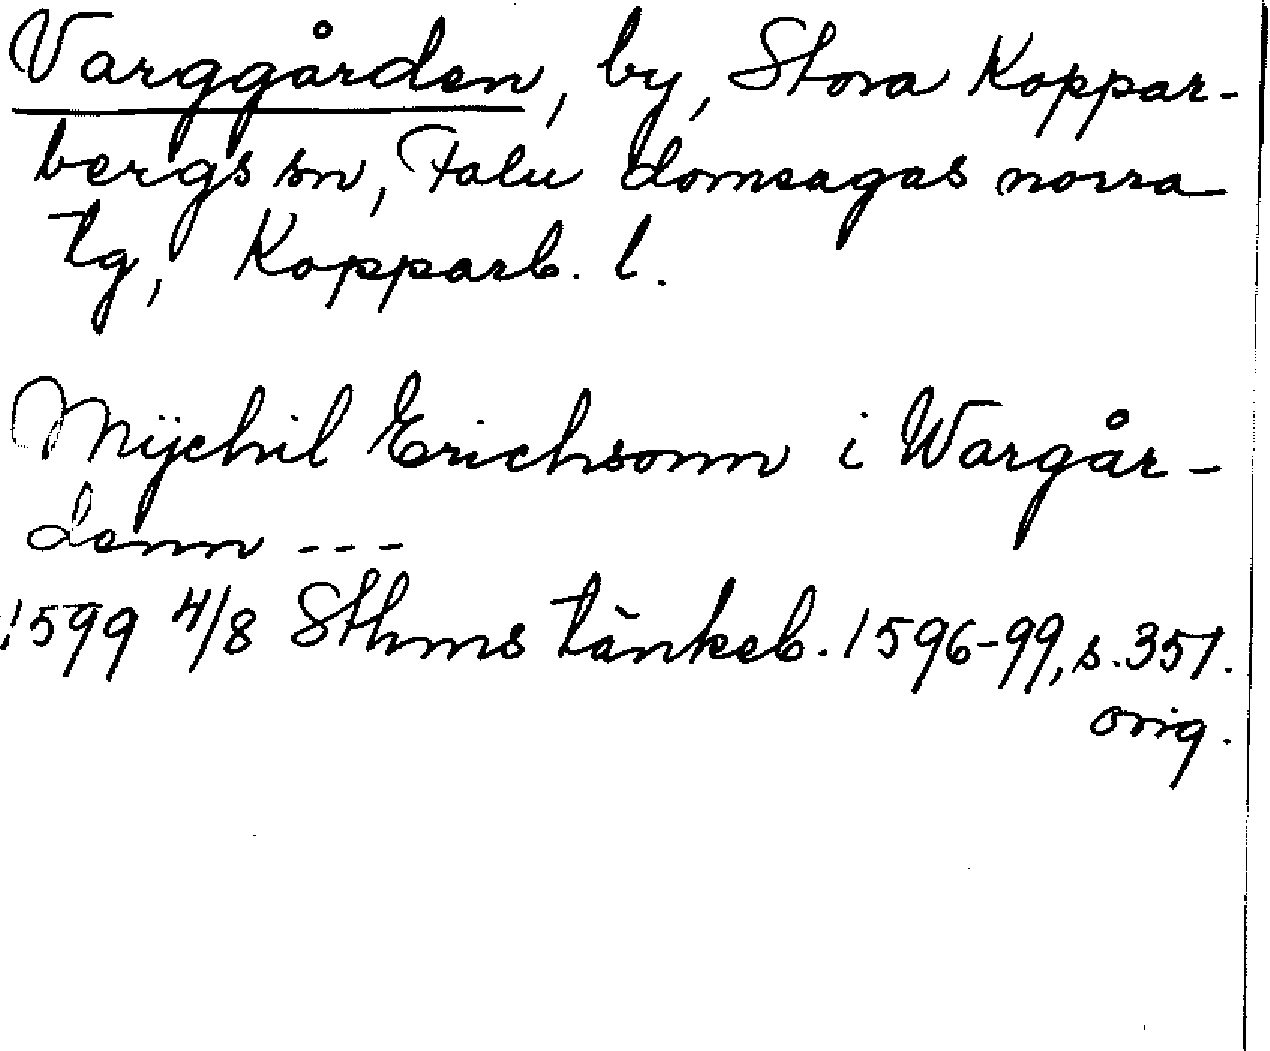 Varggården, by, Stora Koppar-
bergs sn, Falu domsagas norra
tg, Kopparb. l.
Mÿchil Erichsonn i Wargår-
denn ---
1599 4/8 Sthms tänkeb. 1596-99, s. 357.
orig.